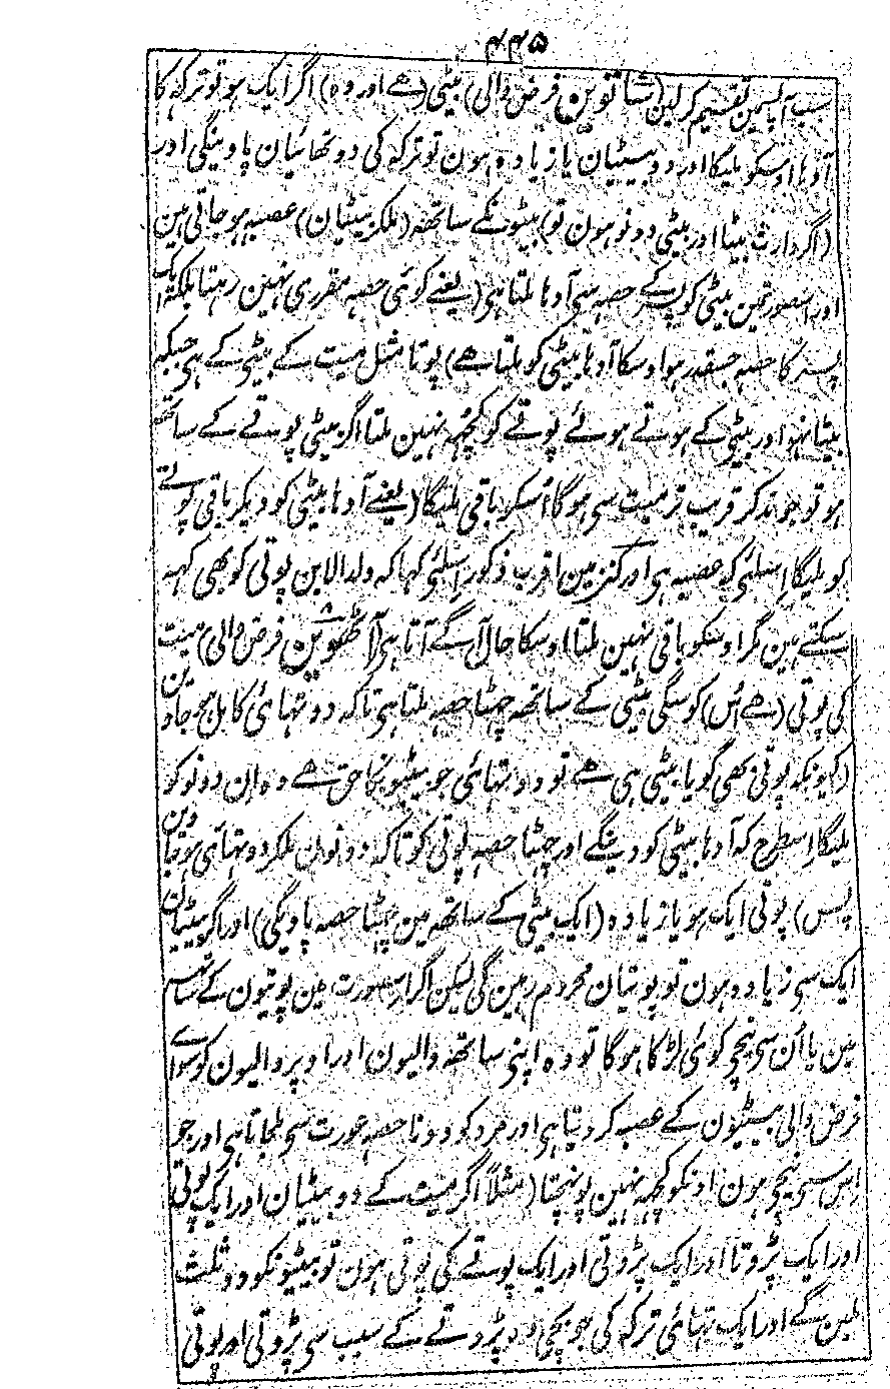 ۴۴۵
سب آپسمین تقسیم کرلین (ساتوین فرض والی) بیٹی (ھے اور وہ) اگر ایک ہو تو ترکہ کا
آدہا اوسکو ملیگا اور دو بیٹیان یا زیادہ ہون تو ترکہ کی دو تھائیان پاوینگی اور
(اگر وارث بیٹا اور بیٹی دونو ہون تو) بیٹونکے ساتھہ (ملکر بیٹیان) عصبہ ہو جاتی ہین
اور اسصورتمین بیٹی کو پسر کے حصہ سی آدہا ملتا ہی (یعنے کوئی حصہ مقرری نہین رہتا بلکہ ایک
پسر کا حصہ جسقدر ہو اوسکا آدہا بیٹی کو ملتا ھے) پوتا مثل میت کے بیٹی کے ہی جبکہ
بیٹا نہو اور بیٹی کے ہوتے ہوئے پوتے کو کچھہ نہین ملتا اگر بیٹی پوتے کے ساتھہ
ہو تو جو مذکر قریب تر میت سی ہوگا اسکو باقی ملیگا (یعنے آدہا بیٹی کو دیکر باقی پوتے
کو ملیگا اسلئے کہ عصبہ ہی اور کنز مین اقرب ذکور اسلئے کہا کہ ولد الابن پوتی کو بھی کہہ
سکتے ہین مگر اوسکو باقی نہین ملتا اوسکا حال آگے آتا ہی) (آٹھوین فرض والی) میت
کی پوتی (ھے اُس) کو سگی بیٹی کے ساتھہ چھٹا حصہ ملتا ہی تاکہ دو تہائی کامل ہو جاوین
(کیونکہ پوتی بھی گویا بیٹی ہی ھے تو دو تہائی جو بیٹیونکا حق ھے وہ ان دونو کو
ملیگا اسطرح کہ آدہا بیٹی کو دینگے اور چھٹا حصہ پوتی کو تاکہ دونوان ملکر دو تہائی ہو جاوین
پس) پوتی ایک ہو یا زیادہ (ایک بیٹی کے ساتھہ مین چھٹا حصہ پاویگی) اور اگر بیٹیان
ایک سی زیادہ ہون تو پوتیان محروم رہین گی لیکن اگر اسصورت مین پوتیون کے ساتھہ
مین یا اُن سی نیچی کوئی لڑکا ہوگا تو وہ اپنی ساتھہ والیون اور اوپر والیون کو سوائے
فرض والی بیٹیون کے عصبہ کر دیتا ہی اور مرد کو دونا حصہ عورت سی ملجاتا ہی اور جو
اس سی نیچی ہون اونکو کچھہ نہین پونہچتا (مثلاً اگر میت کے دو بیٹیان اور ایک پوتی
اور ایک پڑوتا اور ایک پڑوتی اور ایک پوتے کی پوتی ہون تو بیٹیونکو دو ثلث
ملین گے اور ایک تہائی ترکہ کی جو بچی وہ پڑوتے کے سبب سی پڑوتی اور پوتی